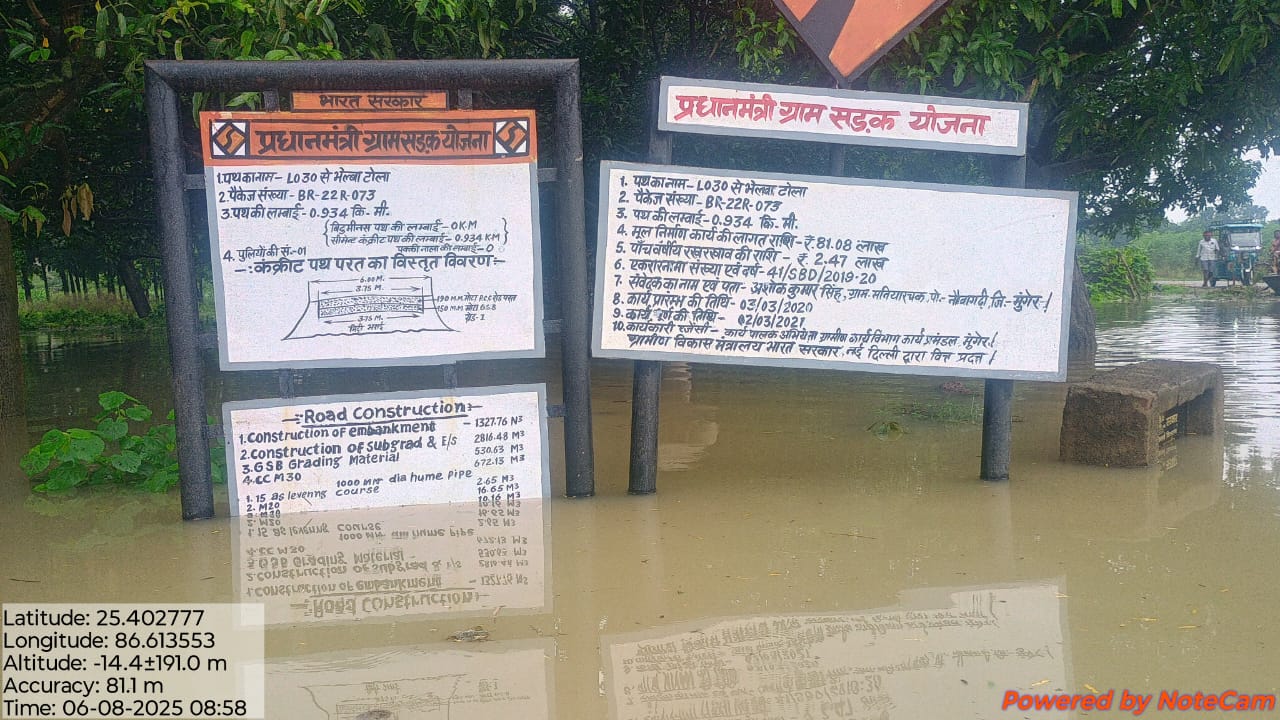 भारत सरकार
प्रधानमंत्री ग्राम सड़क योजना
1.पथ का नाम- L030 से भेलवा टोला
2.पैकेज संख्या- BR-22R-073
3.पथ की लम्बाई-0.934 कि.मी.
बिटुमीनस पथ की लम्बाई-0KM
सीमेंट कंक्रीट पथ की लम्बाई-0.934 KM
पक्की नाला की लम्बाई-0
4. पुलियों की सं.-01
-:कंक्रीट पथ परत का विस्तृत विवरण:-
6.00 M.
3.75 M.
190 M.M. मोटा P.C.C रोड परत
150 M.M. मोटा G.S.B
ग्रेड-I
3.75 M.
मिट्टी भराई
-:Road Construction:-
1.Construction of embankment - 1327.76 N3
2.Construction of subgrad & E/s 2816.48 M3
3.GSB Grading Material 530.63 M3
4.CC M30 672.13 M3
1000 MM dia hume pipe
1. 15 as levening course 2.65 M3
2. M20 16.65 M3
10.16 M3
प्रधानमंत्री ग्राम सड़क योजना
1. पथ का नाम- L030 से भेलवा टोला
2. पैकेज संख्या- BR-22R-073
3. पथ की लम्बाई-0.934 कि. मी.
4. मूल निर्माण कार्य की लागत राशि- ₹ 81.08 लाख
5. पाँच वर्षीय रखरखाव की राशि - ₹ 2.47 लाख
6. एकरारनामा संख्या एवं वर्ष- 41/SBD/2019-20
7. संवेदक का नाम एवं पता- अशोक कुमार सिंह, ग्राम- मनियारचक, पो- नौवागढ़ी, जि:- मुंगेर।
8. कार्य प्रारम्भ की तिथि- 03/03/2020
9. कार्य पूर्ण की तिथि- 02/03/2021
10. कार्यकारी एजेंसी- कार्यपालक अभियंता ग्रामीण कार्य विभाग कार्य प्रमंडल मुंगेर।
ग्रामीण विकास मंत्रालय भारत सरकार, नई दिल्ली द्वारा वित्त प्रदत्त।
Latitude: 25.402777
Longitude: 86.613553
Altitude: -14.4±191.0 m
Accuracy: 81.1 m
Time: 06-08-2025 08:58
Powered by NoteCam